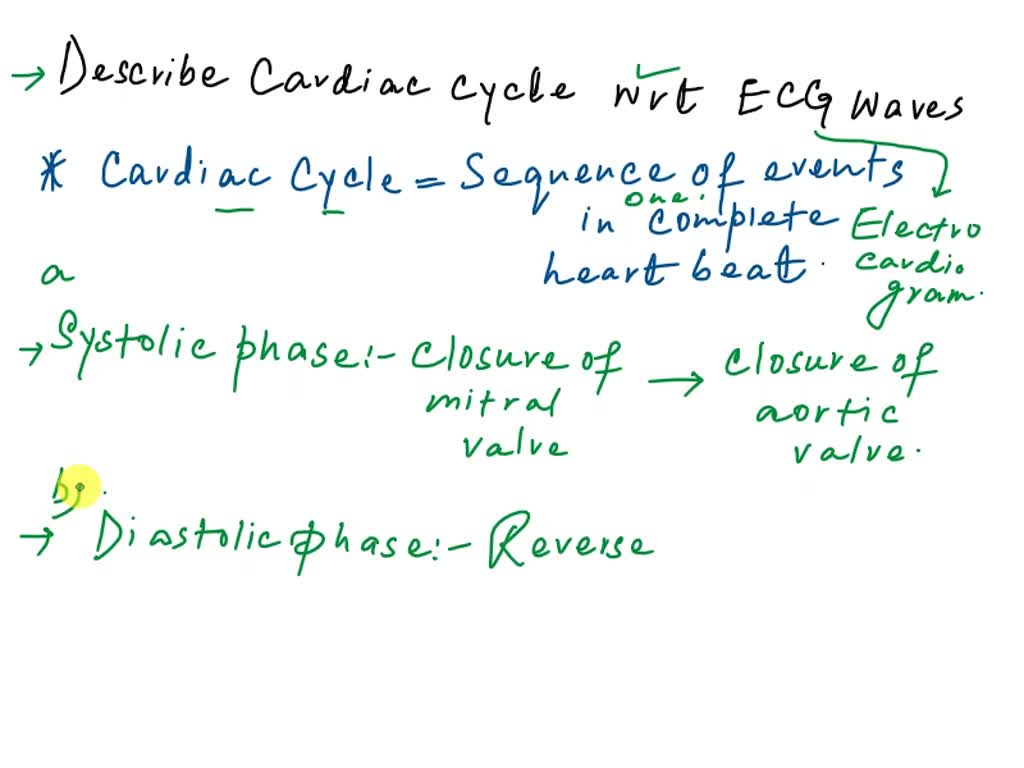 → Describe Cardiac Cycle wrt ECG Waves
* Cardiac Cycle = Sequence of events
in one complete
heart beat.
Electro
cardio
gram.
a
→ Systolic phase:- closure of mitral valve → closure of aortic valve.
b).
→ Diastolic phase:- Reverse